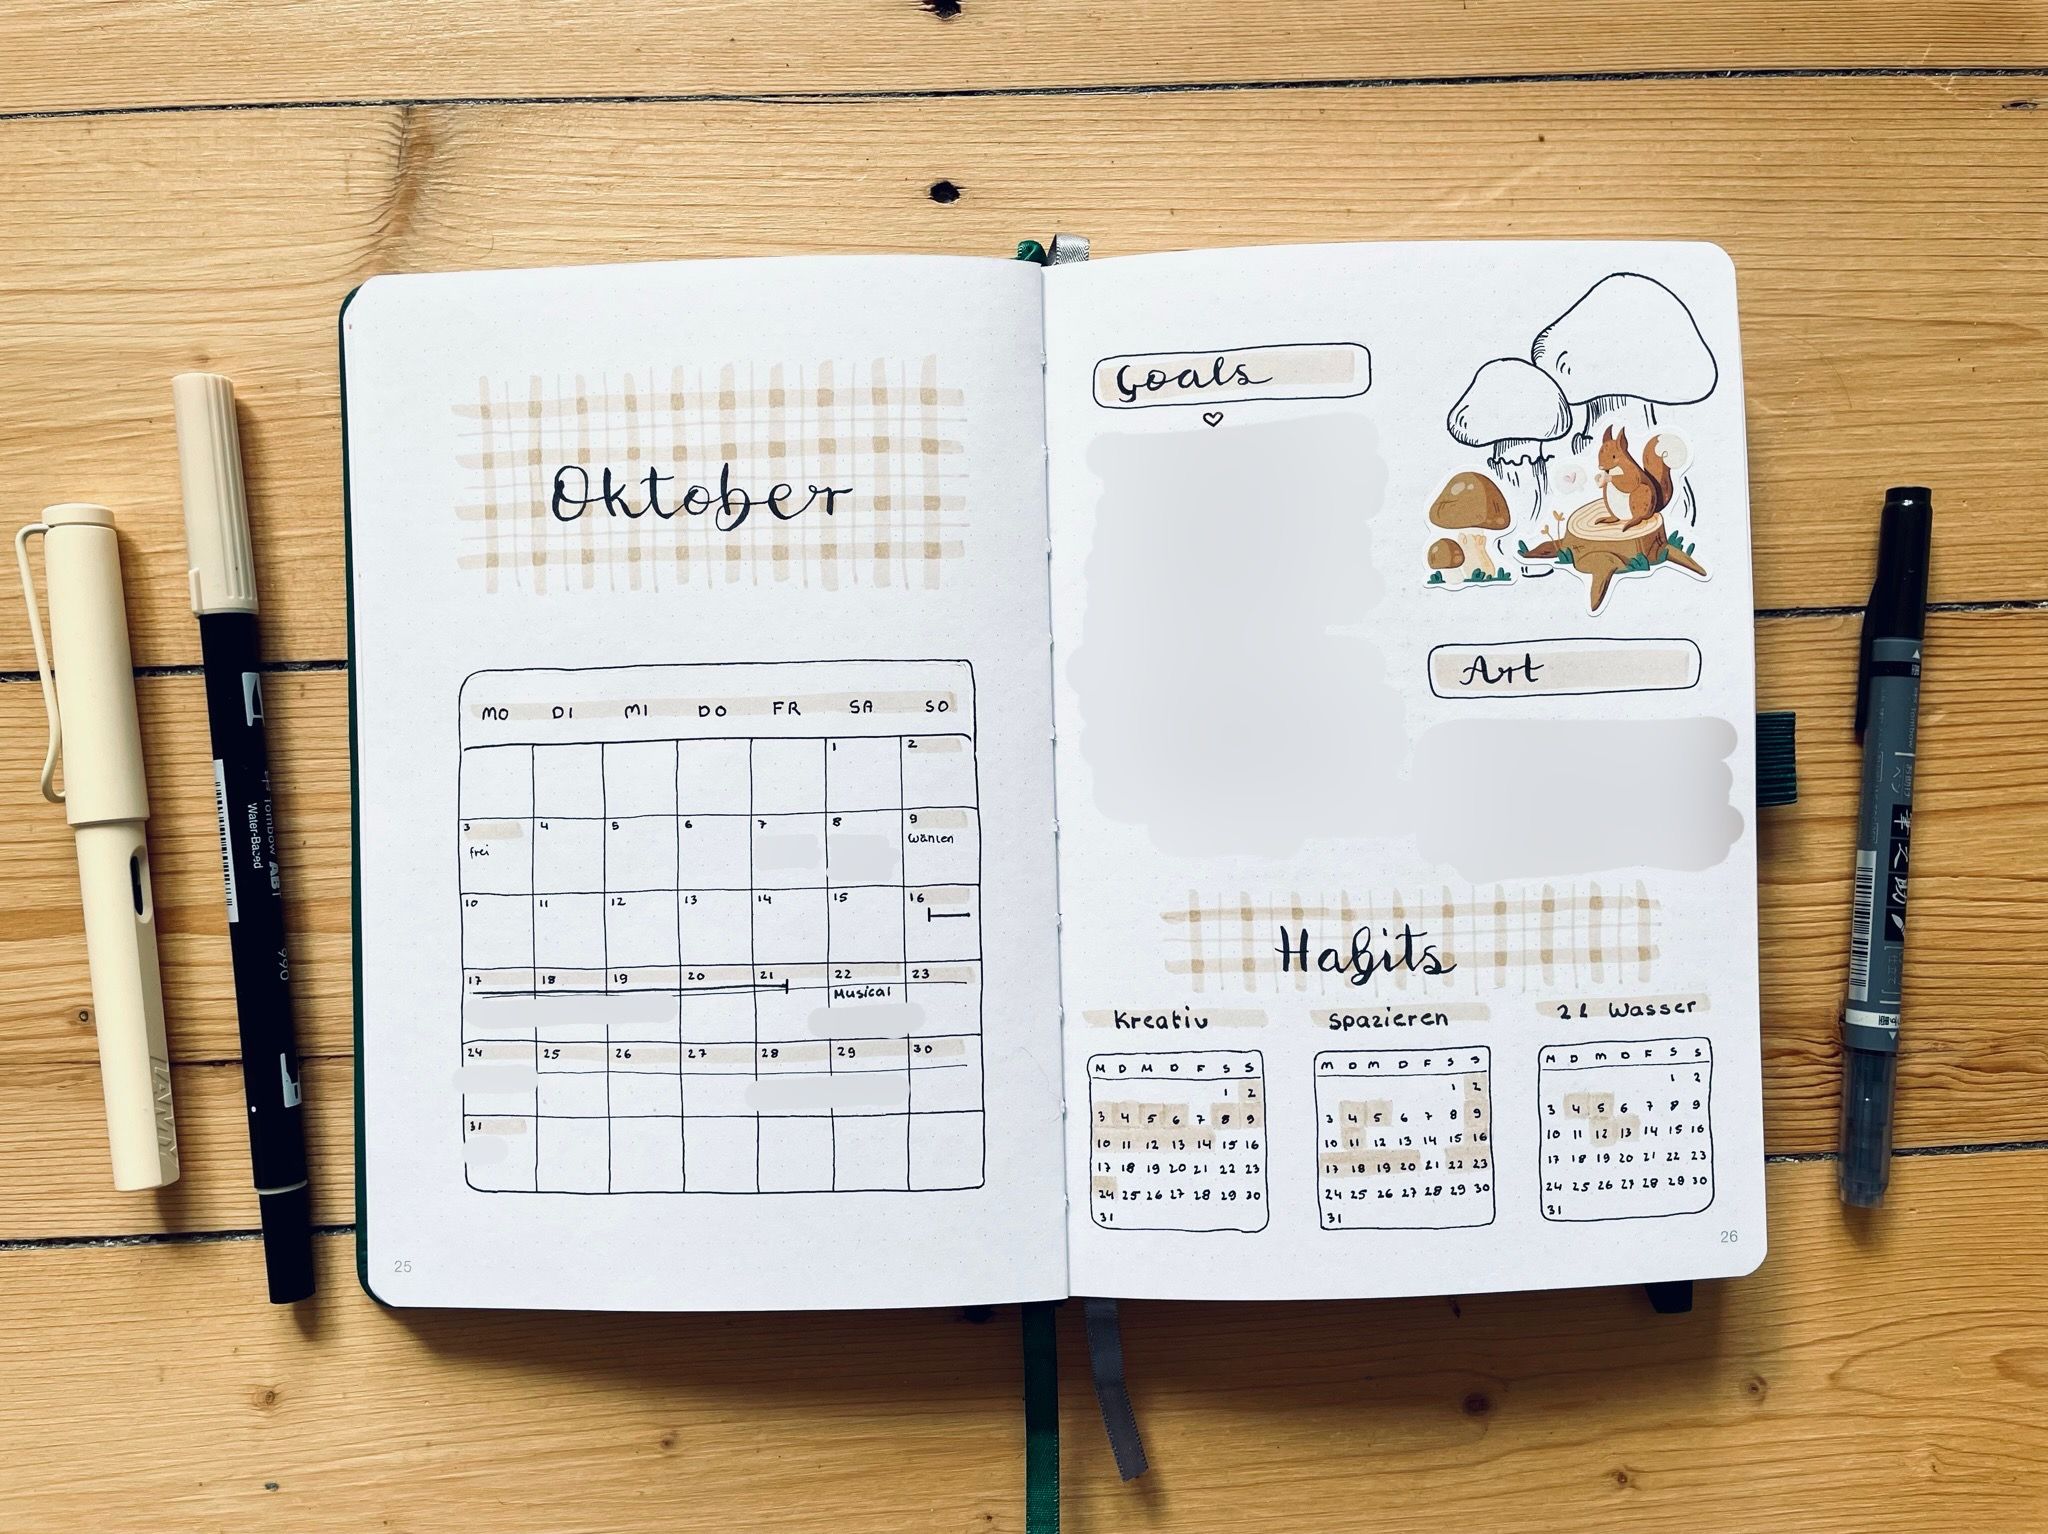 Oktober
MO DI MI DO FR SA SO
1 2
3 4 5 6 7 8 9
frei wählen
10 11 12 13 14 15 16
17 18 19 20 21 22 23
Musical
24 25 26 27 28 29 30
31
25
Goals
Art
Habits
Kreativ
M D M D F S S
1 2
3 4 5 6 7 8 9
10 11 12 13 14 15 16
17 18 19 20 21 22 23
24 25 26 27 28 29 30
31
spazieren
M D M D F S S
1 2
3 4 5 6 7 8 9
10 11 12 13 14 15 16
17 18 19 20 21 22 23
24 25 26 27 28 29 30
31
2 l Wasser
M D M D F S S
1 2
3 4 5 6 7 8 9
10 11 12 13 14 15 16
17 18 19 20 21 22 23
24 25 26 27 28 29 30
31
26
LAMY
Tombow ABT 990
Water-Based
Tombow